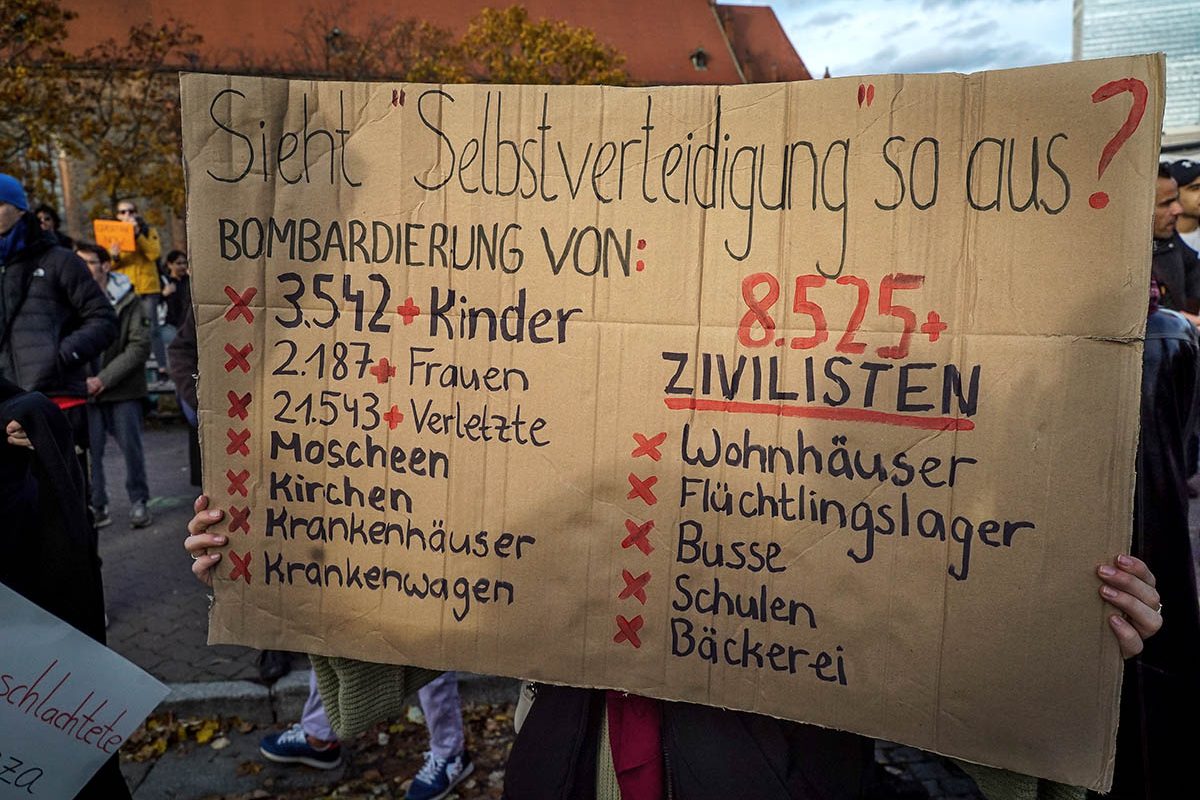 Sieht "Selbstverteidigung" so aus?
BOMBARDIERUNG VON:
x 3.542+ Kinder
x 2.187+ Frauen
x 21.543+ Verletzte
x Moscheen
x Kirchen
x Krankenhäuser
x Krankenwagen
8.525+
ZIVILISTEN
x Wohnhäuser
x Flüchtlingslager
x Busse
x Schulen
x Bäckerei
schlachtete